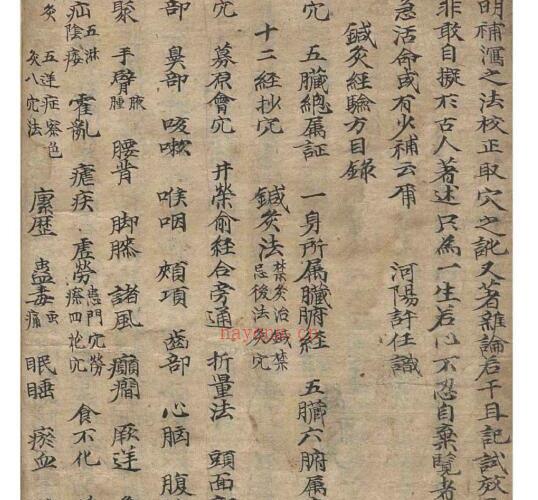 明補瀉之法校正取穴之訛又著雜論若干且記試效
非敢自擬於古人著述只為一生苦心不忍自棄覽者
急活命或有少補云爾
河陽許任識
鍼灸經驗方目錄
穴 五臟總屬証 一身所屬臟腑經 五臟六腑属
十二經抄穴 鍼灸法 禁灸治鍼禁忌後法灸穴
穴 募原會穴 井榮俞經合旁通 折量法 頭面部
部 鼻部 咳嗽 喉咽 頰項 齒部 心胸 腹
聚 手臂 腋腫 腰背 脚膝 諸風 癲癎 厥逆
疝 五淋陰痿 霍亂 瘧疾 虛勞 患門穴勞瘵四花穴 食不化
灸 五逆症察色灸八穴法 瘰歷 蠱毒 虫痛 眠睡 瘀血
nayona.cn